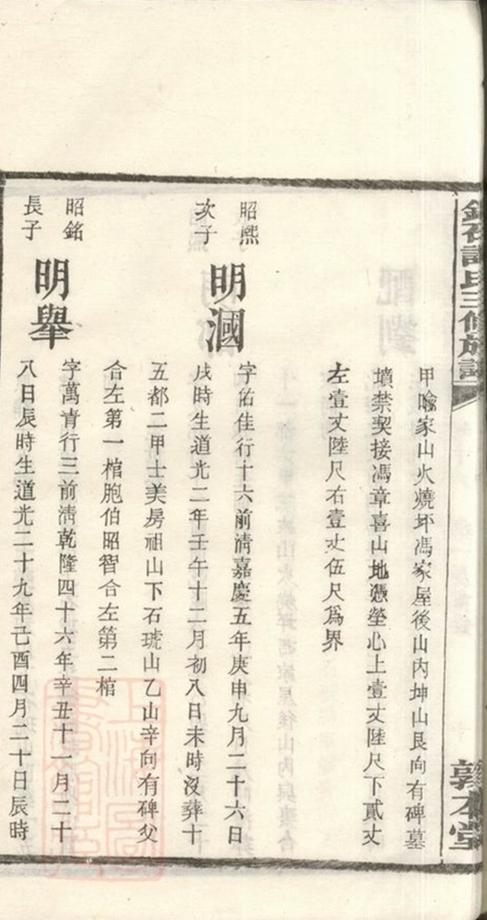 氏三修族譜
敦本堂
甲喻家山火燒坪馮家屋後山內坤山艮向有碑墓
墳禁契接馮章喜山地憑塋心上壹丈陸尺下貳丈
左壹丈陸尺右壹丈伍尺爲界
昭熙
次子
明涸
字佑佳行十六前清嘉慶五年庚申九月二十六日
戌時生道光二年壬午十二月初八日未時沒葬十
五都二甲士美房祖山下石琥山乙山辛向有碑父
合左第一棺胞伯昭智合左第二棺
昭銘
長子
明舉
字萬青行三前清乾隆四十六年辛丑十一月二十
八日辰時生道光二十九年己酉四月二十日辰時